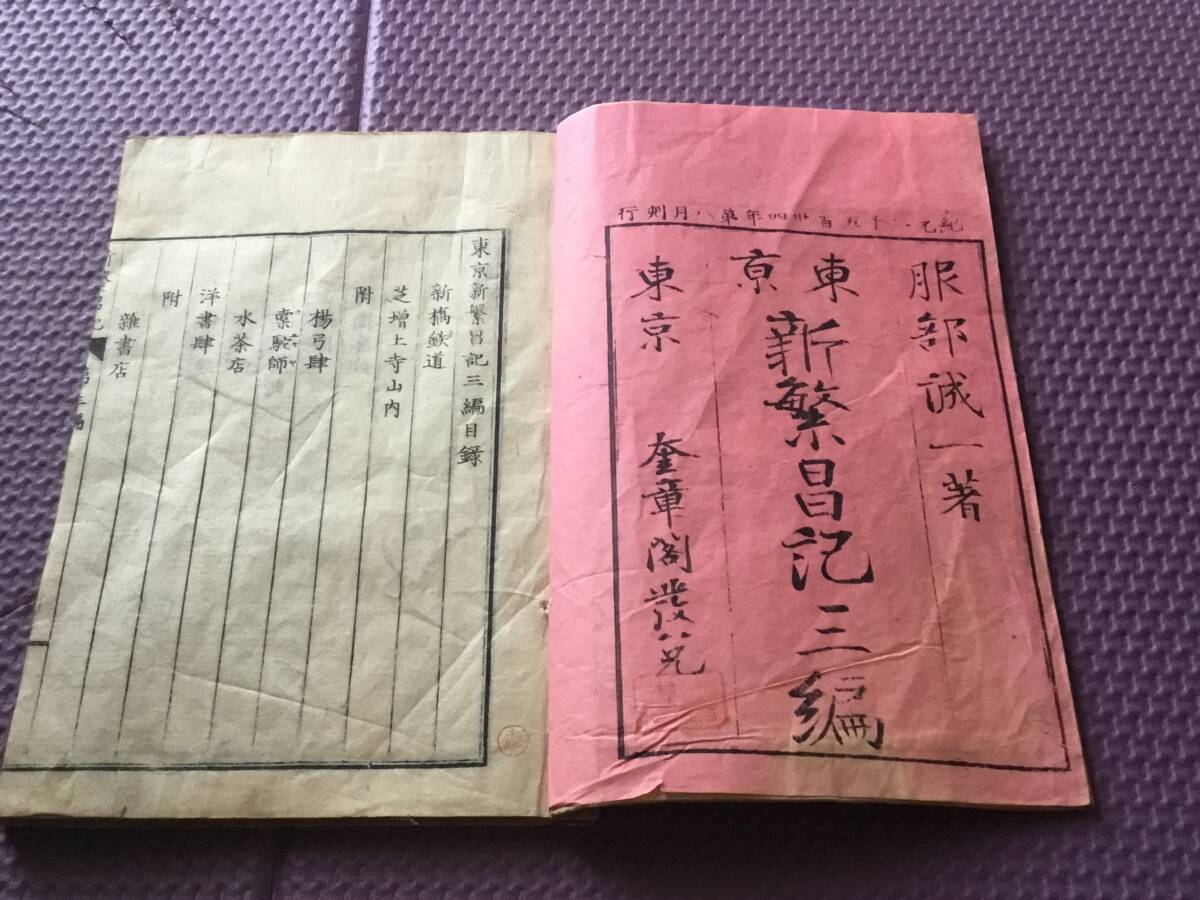 紀元二千五百卅四年第八月刻行
服部誠一著
東京新繁昌記三編
東京 奎章閣發兌
東京新繁昌記三編目録
新橋鉄道
芝增上寺山内
附
楊弓肆
槖駝師
水茶店
洋書肆
附
雜書店